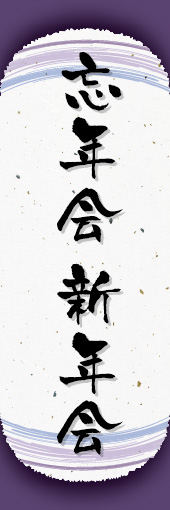 忘年会 新年会